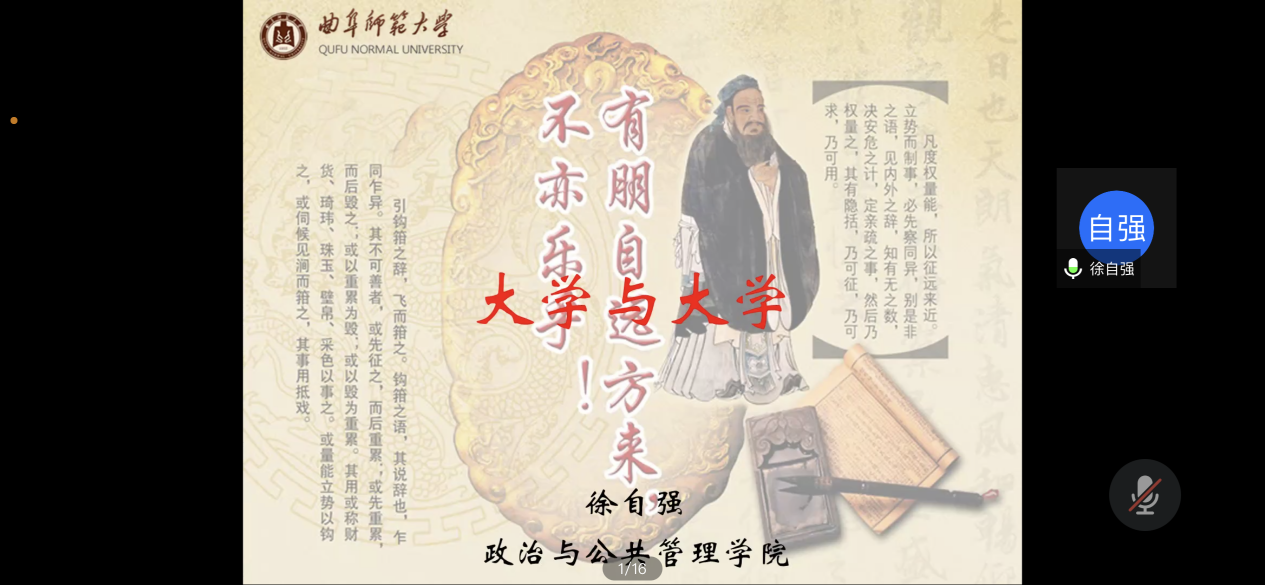 曲阜師範大学
QUFU NORMAL UNIVERSITY
有朋自远方来，
不亦乐乎！
凡度权量能，所以征远来近。
立势而制事，必先察同异，别是非
之语，见内外之辞，知有无之数，
决安危之计，定亲疏之事，然后乃
权量之，其有隐括，乃可征，乃可
求，乃可用。
引钩箝之辞，飞而箝之。钩箝之语，其说辞也，乍
同乍异。其不可善者，或先征之，而后重累；或先重累，
而后毁之；或以重累为毁；或以毁为重累。其用或称财
货、琦玮、珠玉、璧帛、采色以事之。或量能立势以钩
之，或伺候见涧而箝之，其事用抵戏。
大学与大学
徐自强
政治与公共管理学院
1/16
自强
徐自强